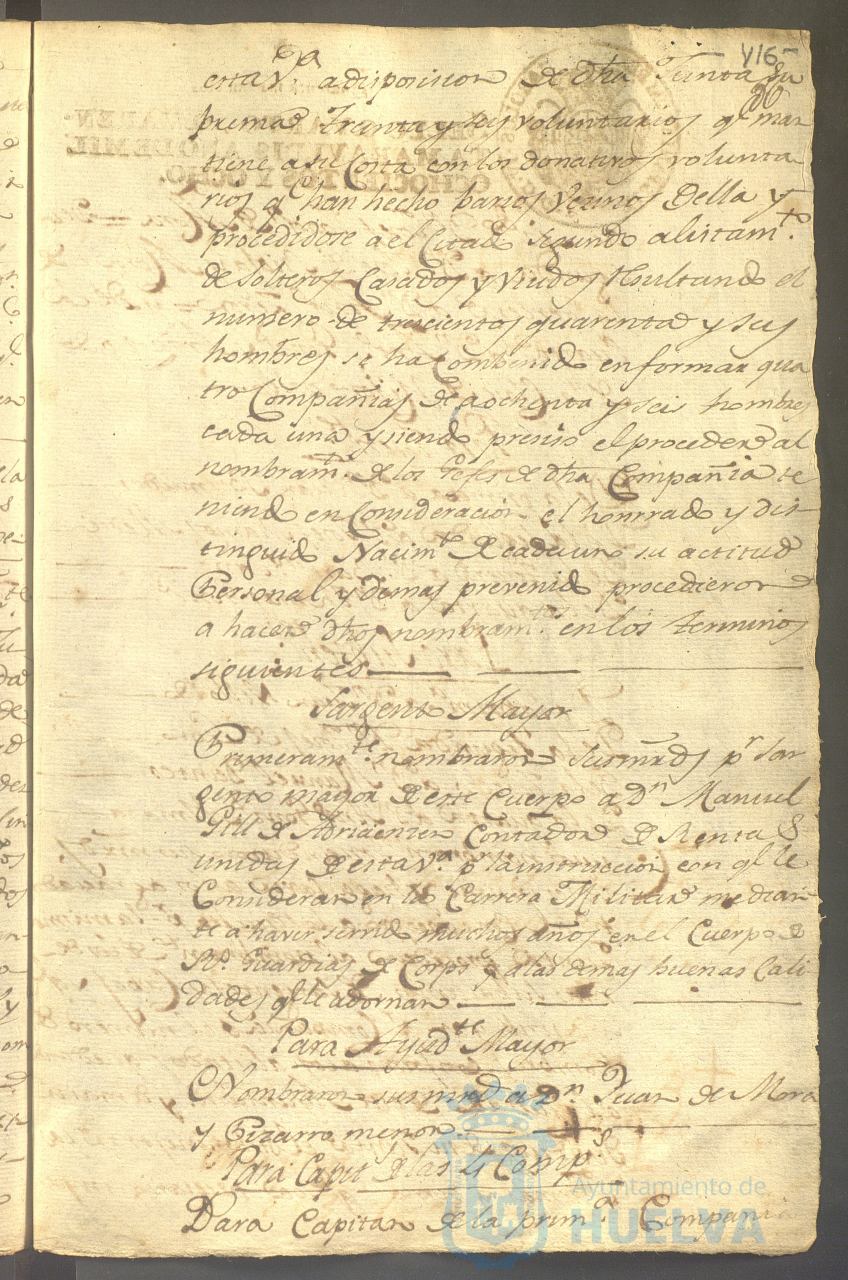 416-
86
esta v.ª a disposicion de dha Junta Su
prema Trenta y seis voluntarios q.e man
tiene a su Costa con los donativos volunta
rios q.e han hecho barios Vecinos della y
procedidose a el Citado segundo alistam.to
de Solteros Casados y Viudos Resultando el
numero de trescientos quarenta y seis
hombres se ha Combenido en formar qua
tro Compañias de a ochenta y seis hombres
cada una y siendo presiso el proceder al
nombram.to de los Gefes de dha Compañia te
niendo en Consideracion el honrrado y dis-
tinguido Nacim.to de cada uno su actitud
Personal y demas prevenido procedieron
a hacer dhos nombram.tos en los terminos
siguientes
Sargento Mayor
Primeram.te nombraron susmrds p.r Sar
gento mayor de este Cuerpo a D.n Manuel
Gill de Contador de Rentas
unidas de esta v.ª p.r la instruccion con q.e le
Consideran en la Carrera Militar median
te a haver servido muchos años en el Cuerpo de
R.s Guardias de Corps y a las demas buenas Cali
dades q.e le adornan
Para Ayud.te Mayor
Nombraron susmrd a D.n Juan de Mora
y Pizarro menor
Para Capit.s de las 4 Comp.s
Para Capitan de la prim.ª Compania
Ayuntamiento de
HUELVA